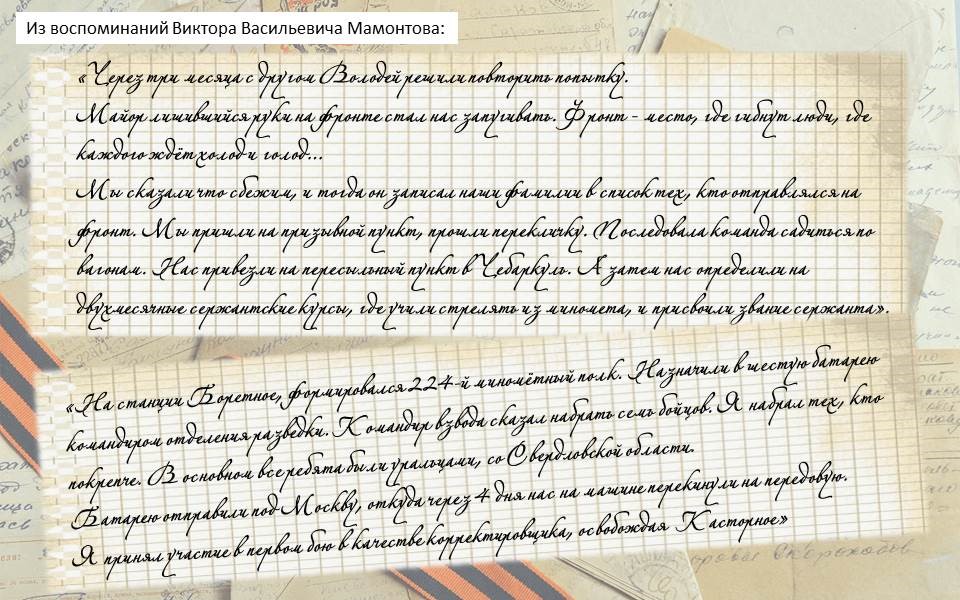 Из воспоминаний Виктора Васильевича Мамонтова:
«Через три месяца с другом Володей решили повторить попытку.
Майор лишившийся руки на фронте стал нас запугивать. Фронт - место, где гибнут люди, где
каждого ждёт холод и голод...
Мы сказали что сбежим, и тогда он записал наши фамилии в список тех, кто отправлялся на
фронт. Мы пришли на призывной пункт, прошли перекличку. Последовала команда садиться по
вагонам. Нас привезли на пересыльный пункт в Чебаркуль. А затем нас определили на
двухмесячные сержантские курсы, где учили стрелять из миномета, и присвоили звание сержанта».
«На станции Боретное, формировался 224-й миномётный полк. Назначили в шестую батарею
командиром отделения разведки. Командир взвода сказал набрать семь бойцов. Я набрал тех, кто
покрепче. В основном все ребята были уральцами, со Свердловской области.
Батарею отправили под Москву, откуда через 4 дня нас на машине перекинули на передовую.
Я принял участие в первом бою в качестве корректировщика, освобождая Касторное»